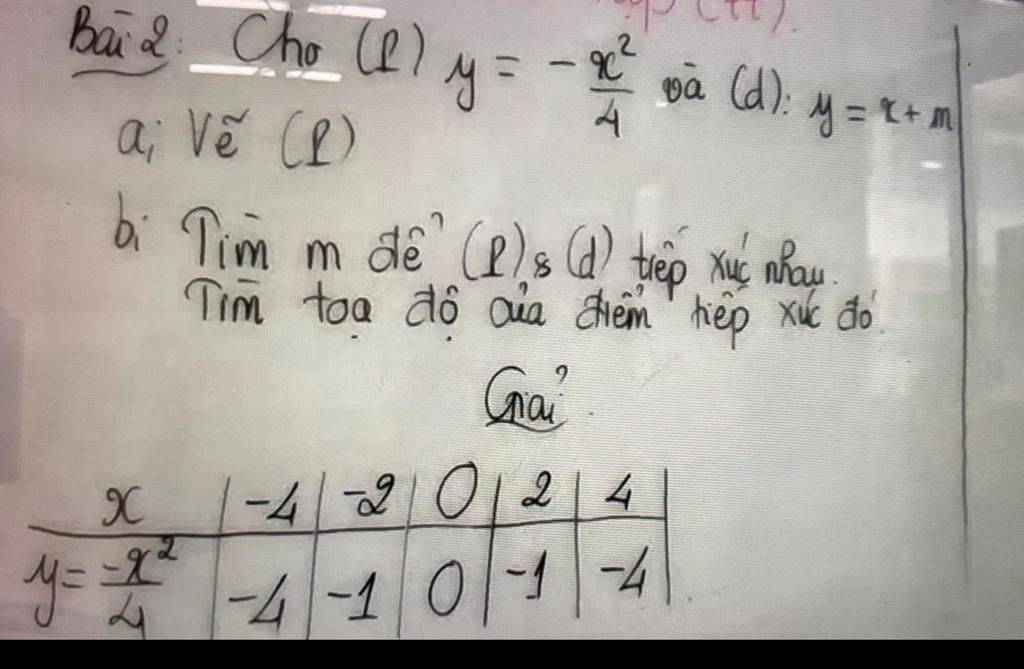 Bài 2: Cho (P) y = -x²/4 và (d): y = x + m
a; Vẽ (P)
b; Tìm m để (P) & (d) tiếp xúc nhau.
Tìm toạ độ của điểm tiếp xúc đó.
Giải.
x | -4 | -2 | 0 | 2 | 4 |
y = -x²/4 | -4 | -1 | 0 | -1 | -4